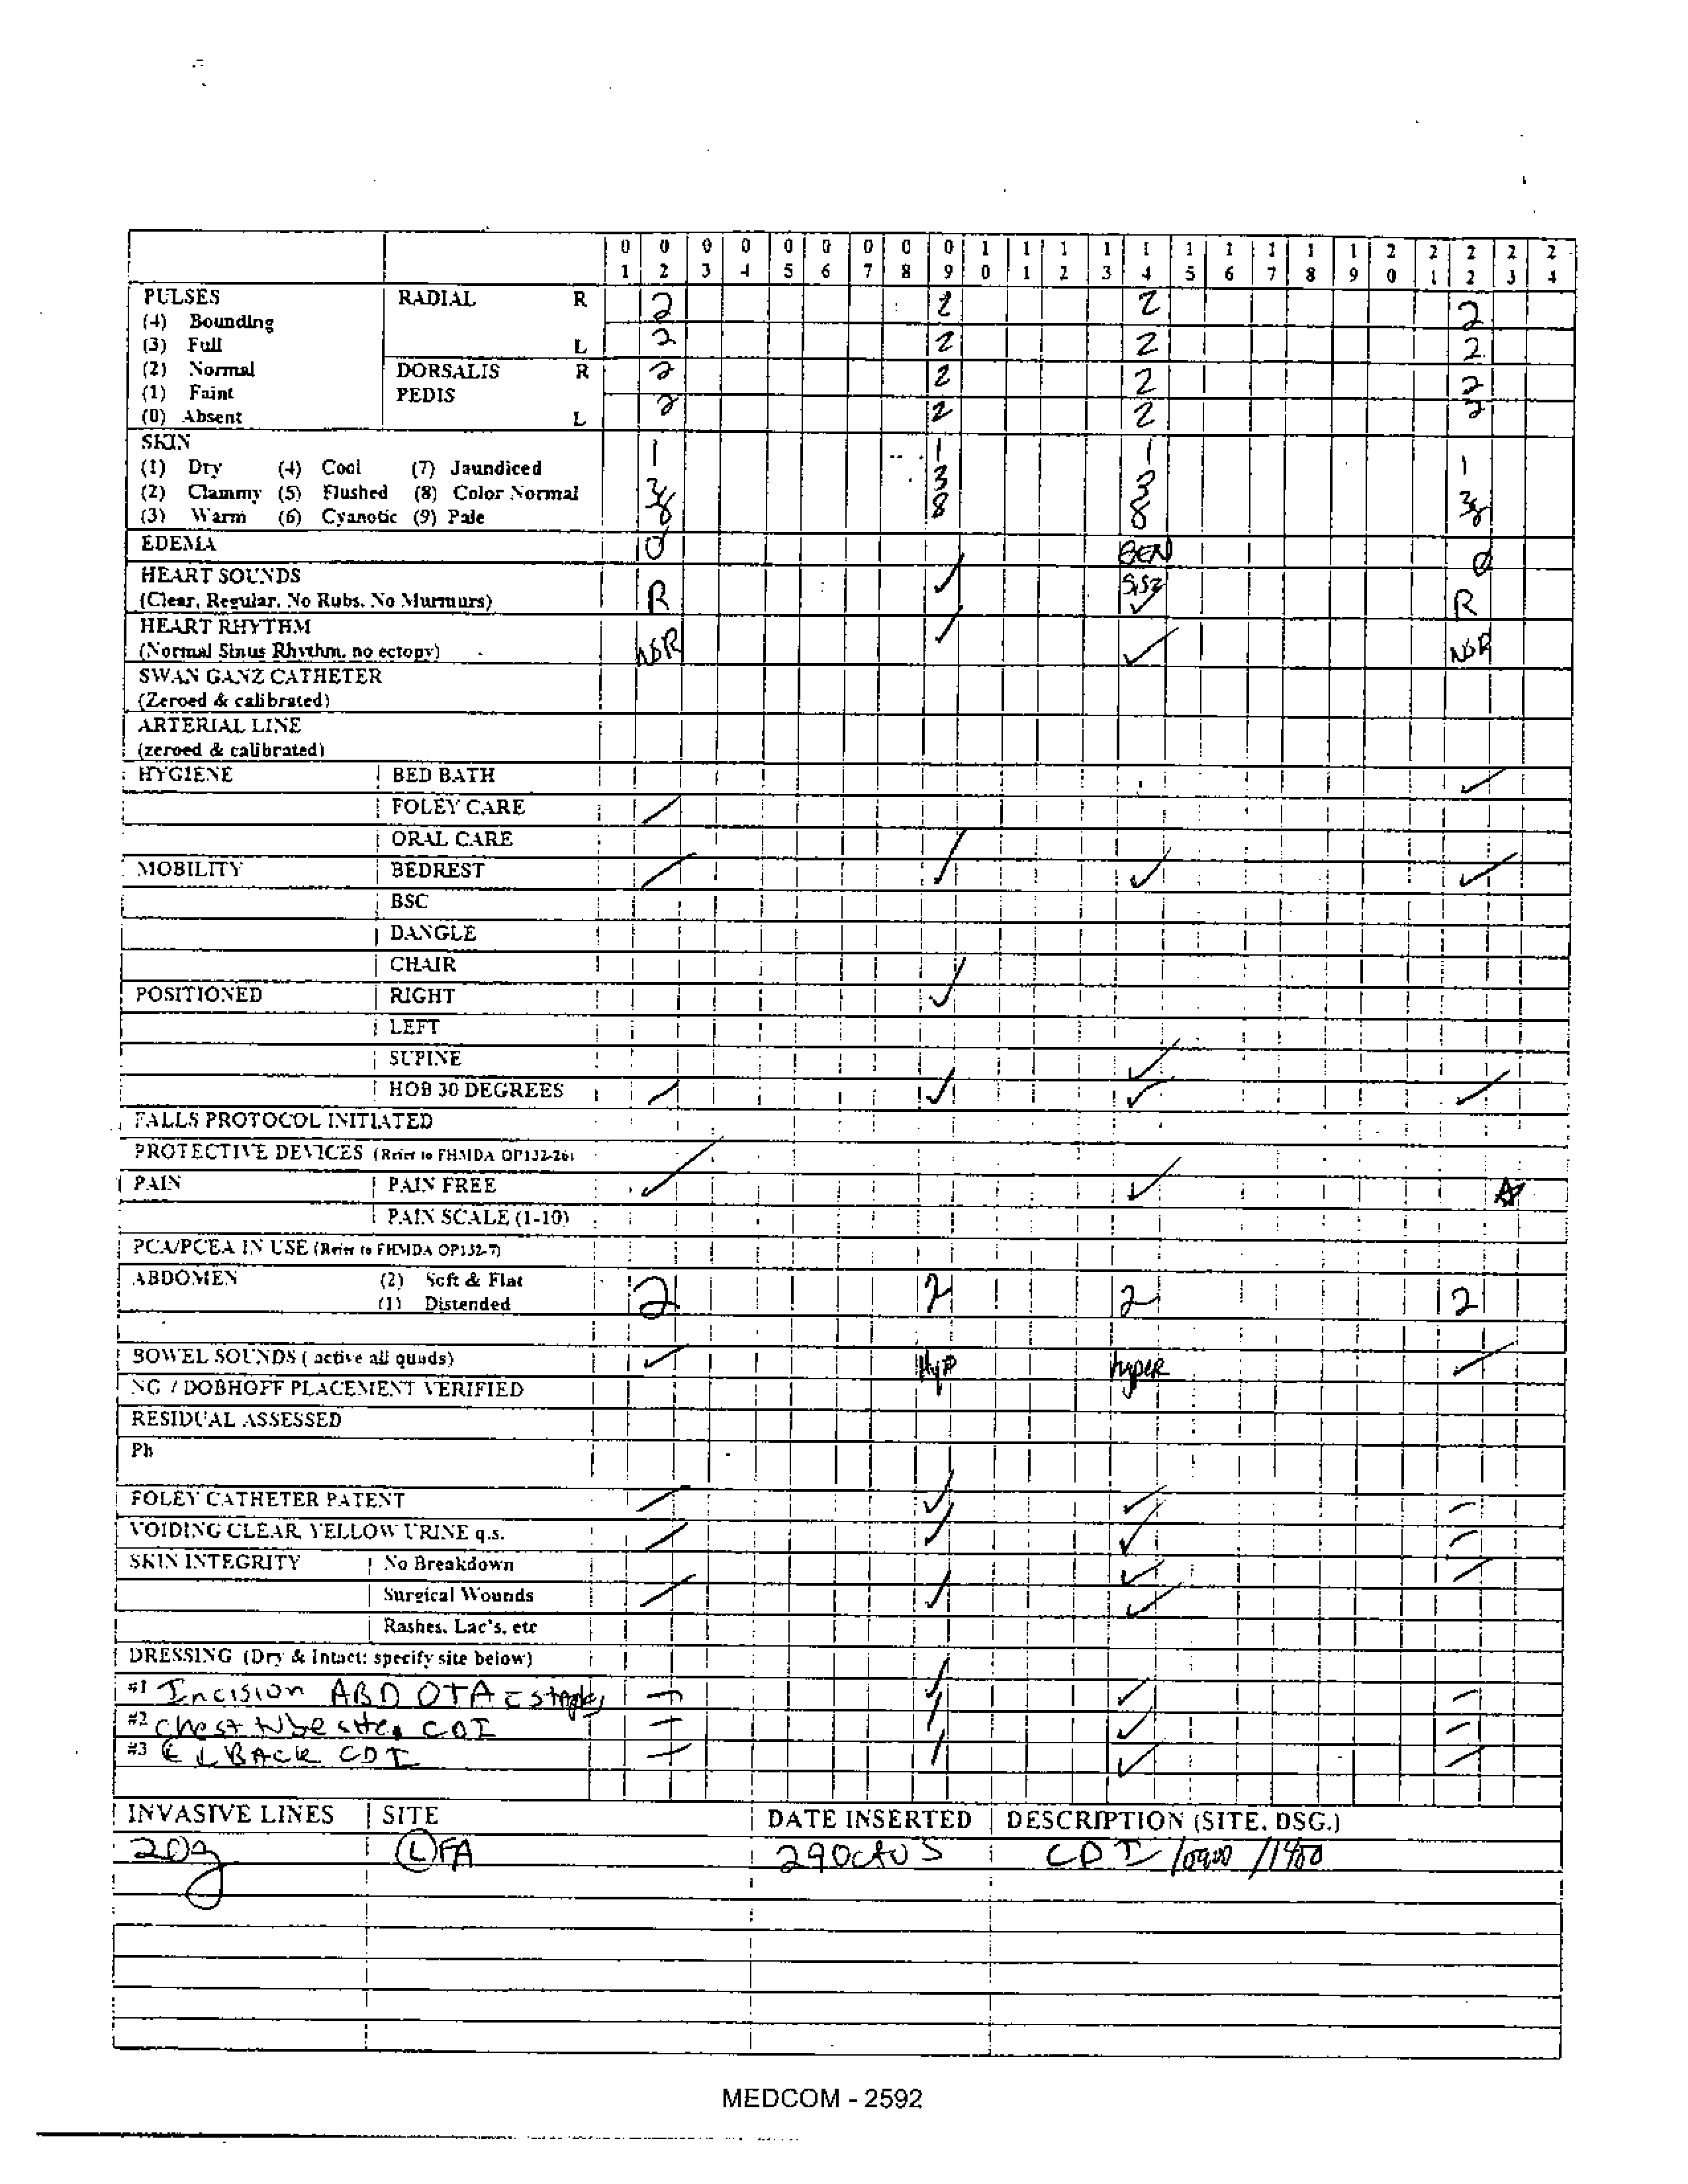 0 0 0 0 0 0 0 0 0 1 1 1 1 1 1 1 1 1 1 2 2 2 2 2
1 2 3 4 5 6 7 8 9 0 1 2 3 4 5 6 7 8 9 0 1 2 3 4
PULSES RADIAL R 2 2 2 2
(4) Bounding
(3) Full L 2 2 2 2
(2) Normal DORSALIS R 2 2 2 2
(1) Faint PEDIS
(0) Absent L 2 2 2 2
SKIN 1 1 1 1
(1) Dry (4) Cool (7) Jaundiced
(2) Clammy (5) Flushed (8) Color Normal 3 3 3 3
(3) Warm (6) Cyanotic (9) Pale 8 8 8 8
EDEMA 0 Ø
HEART SOUNDS S1S2
(Clear, Regular, No Rubs, No Murmurs) R ✓ ✓ R
HEART RHYTHM
(Normal Sinus Rhythm, no ectopy) NSR ✓ ✓ NSR
SWAN GANZ CATHETER
(Zeroed & calibrated)
ARTERIAL LINE
(zeroed & calibrated)
HYGIENE BED BATH ✓
FOLEY CARE ✓
ORAL CARE
MOBILITY BEDREST ✓ ✓ ✓ ✓
BSC
DANGLE
CHAIR
POSITIONED RIGHT ✓
LEFT
SUPINE ✓
HOB 30 DEGREES ✓ ✓ ✓ ✓
FALLS PROTOCOL INITIATED
PROTECTIVE DEVICES (Refer to FHMDA OP132-26)
PAIN PAIN FREE ✓ ✓
PAIN SCALE (1-10)
PCA/PCEA IN USE (Refer to FHMDA OP132-7)
ABDOMEN (2) Soft & Flat
(1) Distended 2 2 2 2
BOWEL SOUNDS ( active all quads) ✓ Hyp hyper ✓
NG / DOBHOFF PLACEMENT VERIFIED
RESIDUAL ASSESSED
Ph
FOLEY CATHETER PATENT ✓ ✓ ✓ ✓
VOIDING CLEAR YELLOW URINE q.s. ✓ ✓ ✓ ✓
SKIN INTEGRITY No Breakdown ✓ ✓
Surgical Wounds ✓ ✓ ✓
Rashes, Lac's, etc
DRESSING (Dry & Intact: specify site below)
#1 Incision ABD OTA c staples ✓ ✓
#2 Chest tube site CDI ✓ ✓
#3 L BACK CDI ✓ ✓
INVASIVE LINES SITE DATE INSERTED DESCRIPTION (SITE, DSG.)
20g Ⓛ FA 29Oct03 CDI /0900 /1400
MEDCOM - 2592